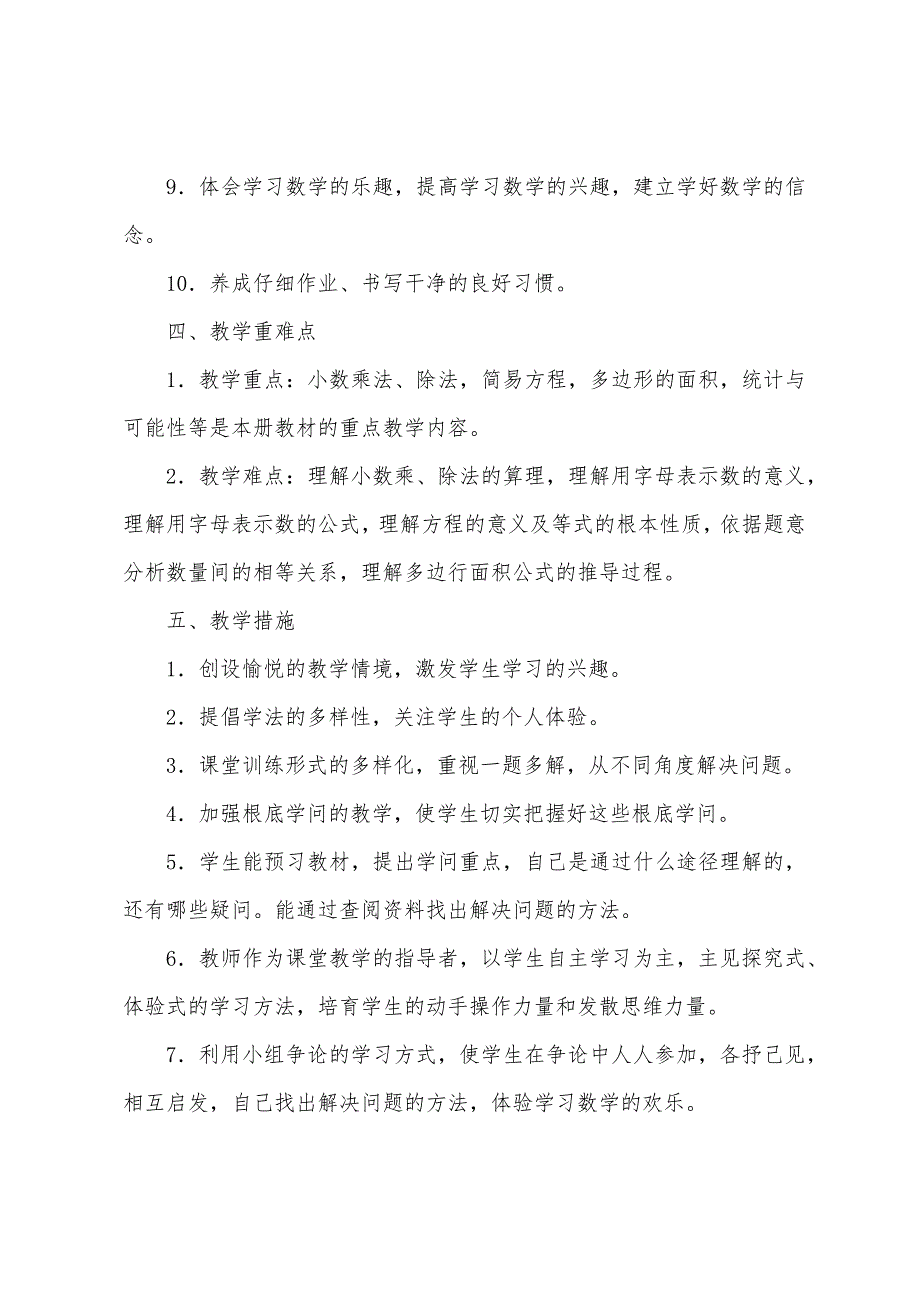 9．体会学习数学的乐趣，提高学习数学的兴趣，建立学好数学的信
念。
10．养成仔细作业、书写干净的良好习惯。
四、教学重难点
1．教学重点：小数乘法、除法，简易方程，多边形的面积，统计与
可能性等是本册教材的重点教学内容。
2．教学难点：理解小数乘、除法的算理，理解用字母表示数的意义，
理解用字母表示数的公式，理解方程的意义及等式的根本性质，依据题意
分析数量间的相等关系，理解多边行面积公式的推导过程。
五、教学措施
1．创设愉悦的教学情境，激发学生学习的兴趣。
2．提倡学法的多样性，关注学生的个人体验。
3．课堂训练形式的多样化，重视一题多解，从不同角度解决问题。
4．加强根底学问的教学，使学生切实把握好这些根底学问。
5．学生能预习教材，提出学问重点，自己是通过什么途径理解的，
还有哪些疑问。能通过查阅资料找出解决问题的方法。
6．教师作为课堂教学的指导者，以学生自主学习为主，主见探究式、
体验式的学习方法，培育学生的动手操作力量和发散思维力量。
7．利用小组争论的学习方式，使学生在争论中人人参加，各抒己见，
相互启发，自己找出解决问题的方法，体验学习数学的欢乐。